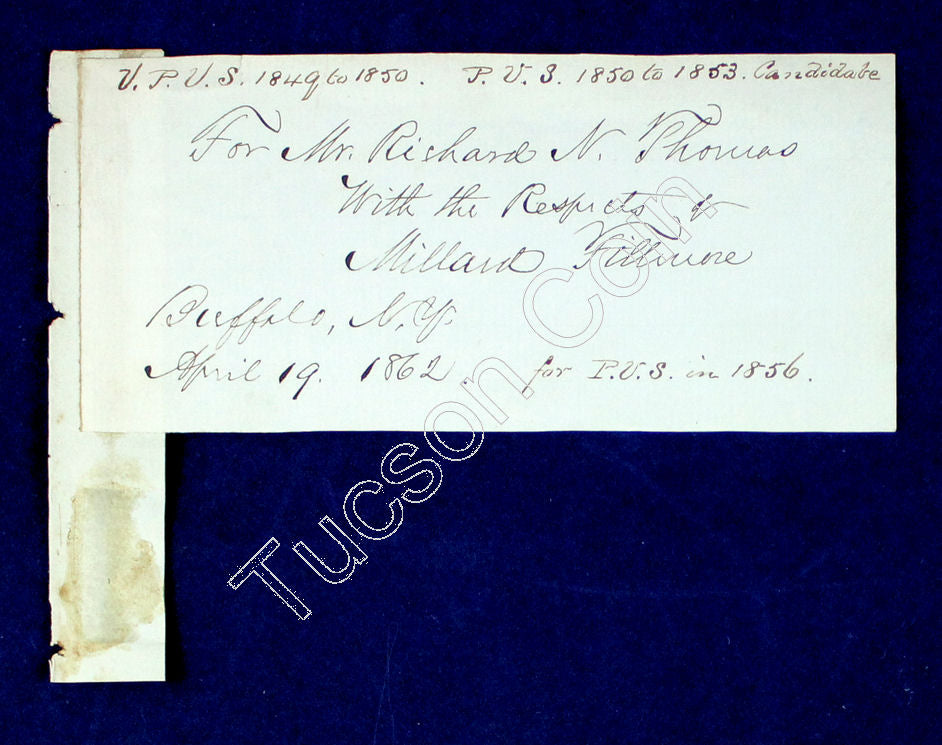 V. P. U. S. 1849 to 1850. P. U. S. 1850 to 1853. Candidate
For Mr. Richard N. Thomas
With the Respects of
Millard Fillmore
Buffalo, N.Y.
April 19. 1862. for P.U.S. in 1856.
Tucson Coin